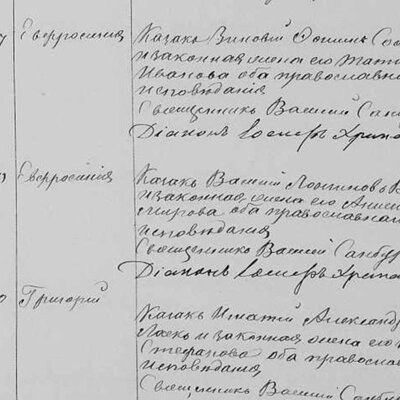 Евфросинія
Казакъ Зиновій Осипъ
и законная жена его
Иванова оба православн
исповѣданія
Священникъ Василій Сам
Діаконъ Іосифъ Хри
Евфросинія
Казакъ Василій Логгиновъ
и законная жена его Аниси
оба православнаго
исповѣданія
Священникъ Василій Самбур
Діаконъ Іосифъ Хри
Григорій
Казакъ Игнатій Александр
и законная жена его
Стефанова оба правосла
исповѣданія
Священникъ Василій Самбур